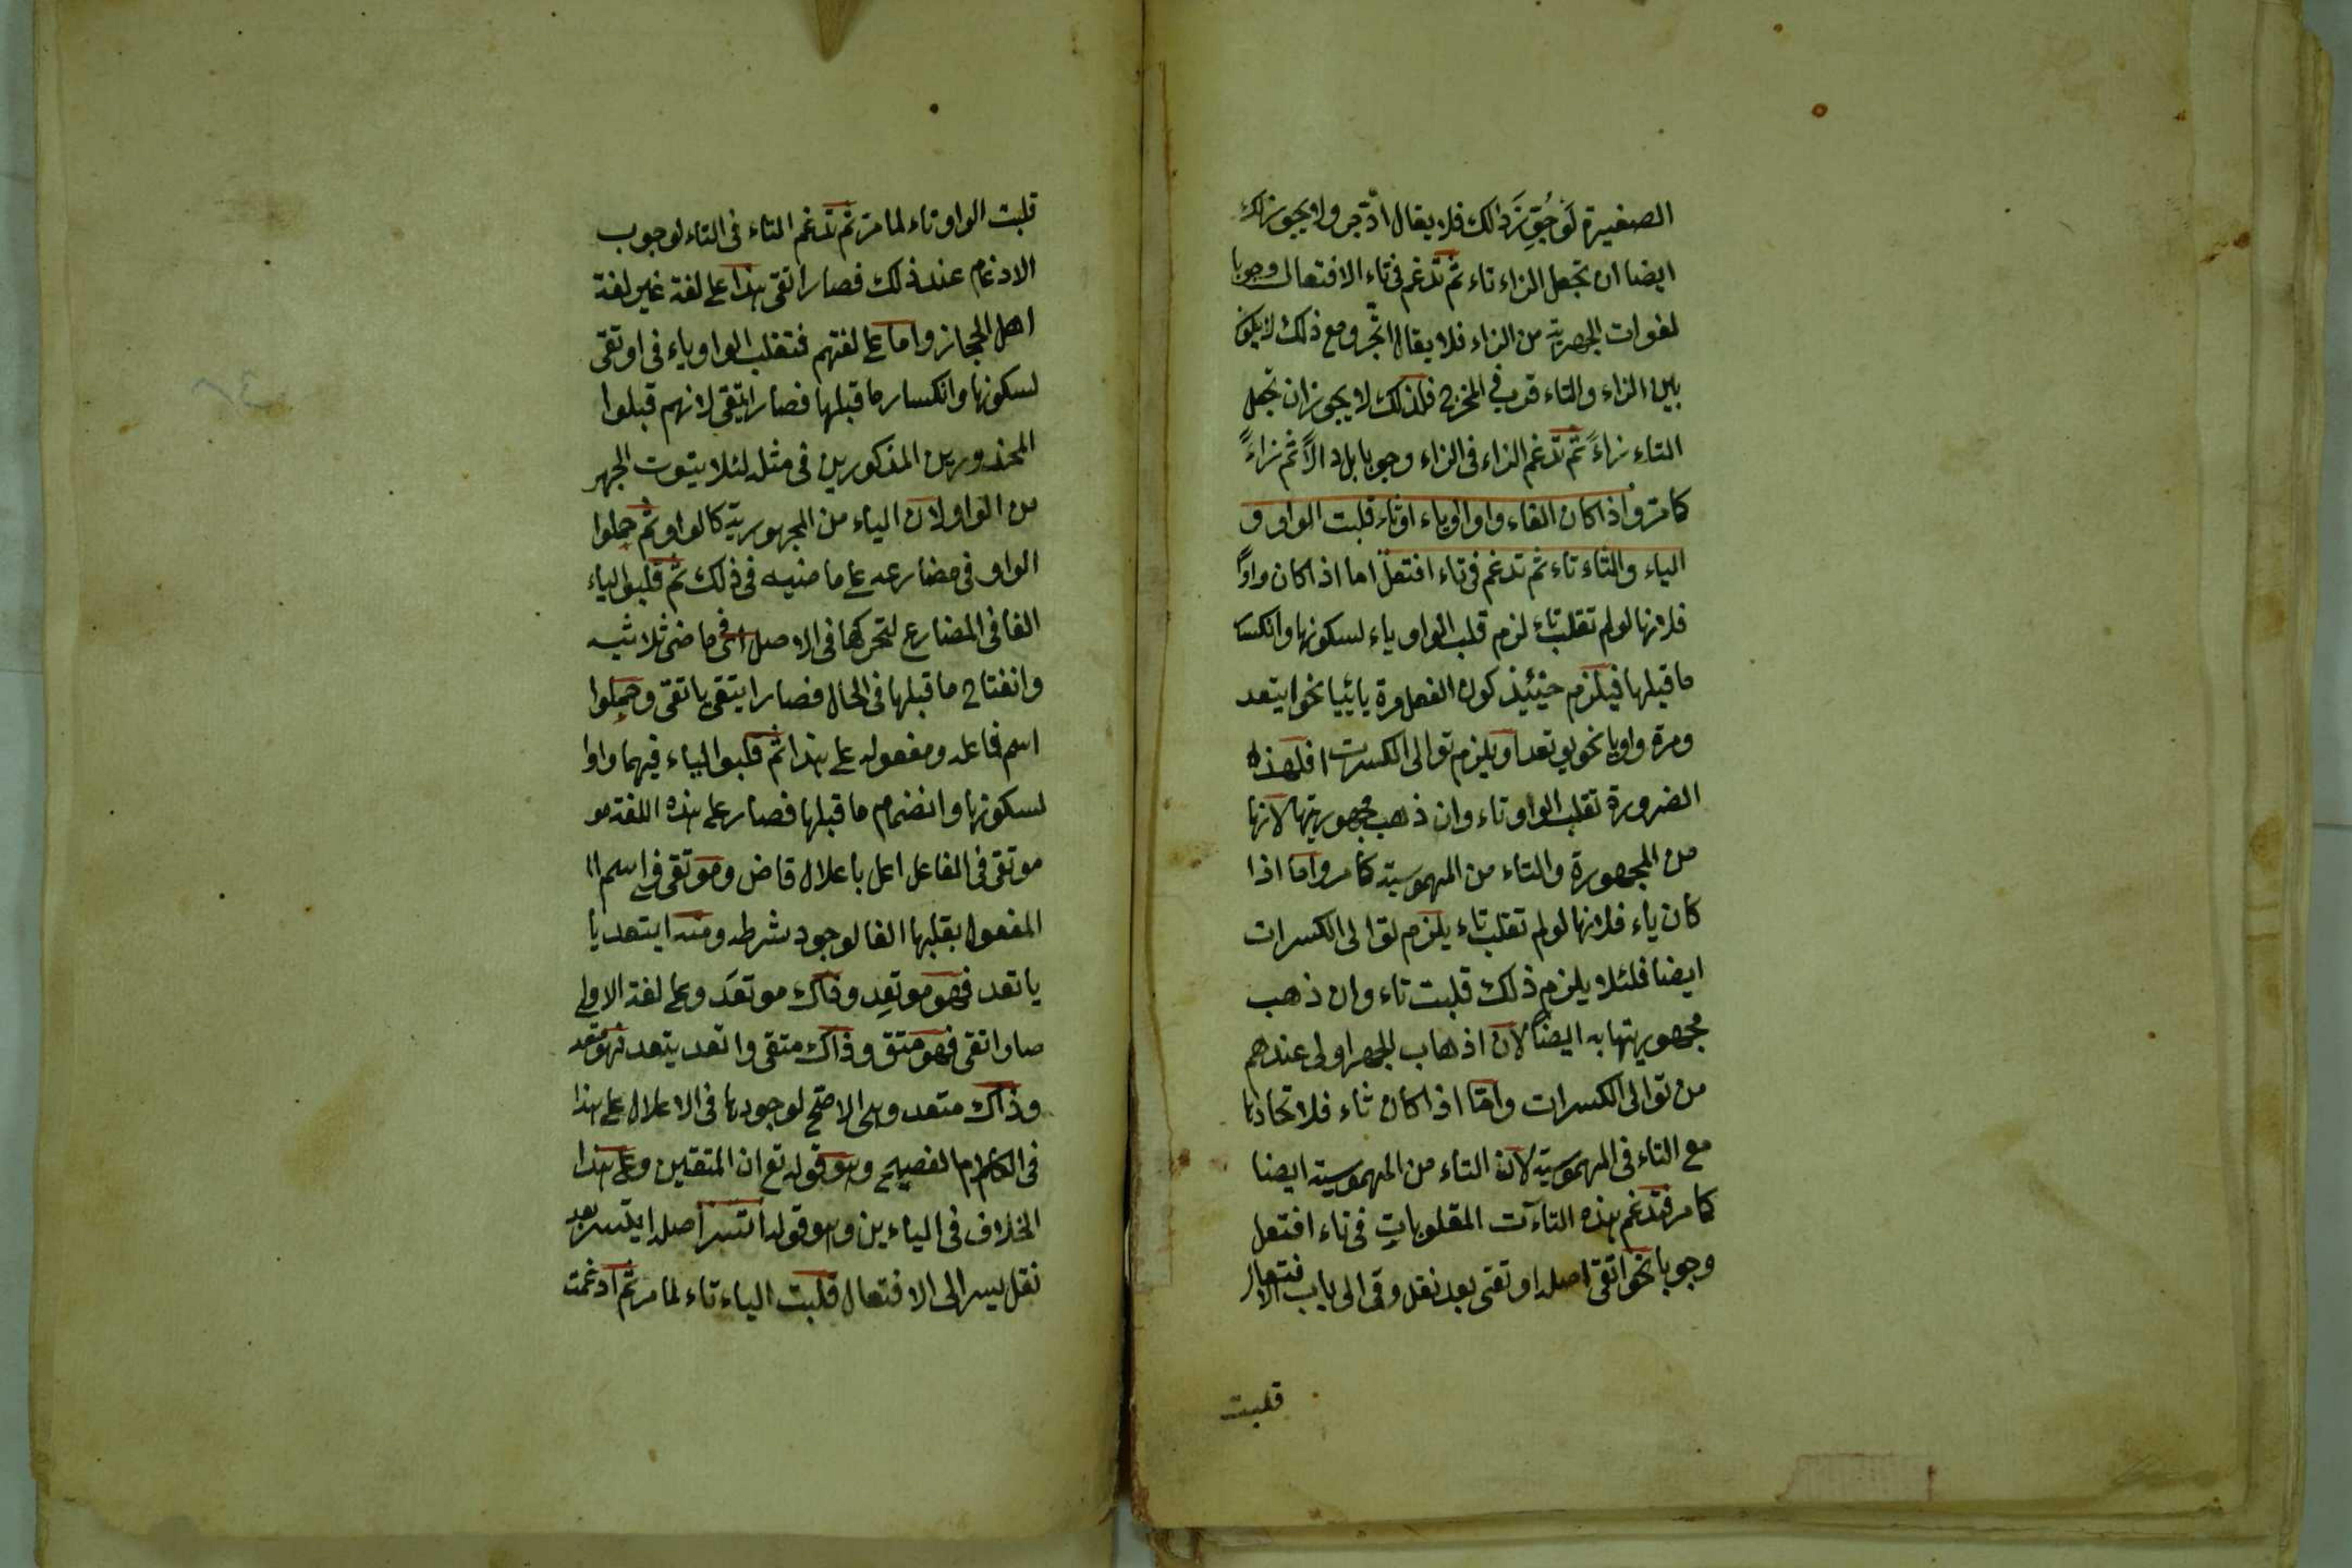 الصغيرة لَوْجُوِّزَ ذالك فلا يقال ادّجر ولا يجوز ذلك
ايضا ان تجعل الزاء تاء ثم تدغم فى تاء الافتعال وجوبا
لفوات الجهرية من الزاء فلا يقال اتّجر ومع ذلك لا يكون
بين الزاء والتاء قرب فى المخرج فلذلك لا يجوز ان تجعل
التاء زاءً ثم تدغم الزاء فى الزاء وجوبا بل دالاً ثم زاءً
كما مر واذا كان الفاء واوا او ياء او ثاء قلبت الواو و
الياء والثاء تاء ثم تدغم فى تاء افتعل اما اذا كان واوًا
فلانها لو لم تقلب تاء لزم قلب الواو ياء لسكونها وانكسا
ما قبلها فيلزم حينئيذ كون الفعل مرة يائيا نحو ايتعد
ومرة واويا نحو يوتعد او يلزم توالى الكسرت افلهذه
الضرورة تقلب الواو تاء وان ذهب مجهوريتها لانها
من المجهورة والتاء من المهموسية كما مر واما اذا
كان ياء فلانها لو لم تقلب تاء يلزم توالى الكسرات
ايضا فلئلا يلزم ذلك قلبت تاء وان ذهب
مجهوريتها به ايضاً لان اذهاب الجهر اولى عندهم
من توالى الكسرات واما اذا كان ثاء فلاتحادها
مع التاء فى المهموسية لان الثاء من المهموسية ايضا
كما مر فتدغم هذه التاآت المقلوبات فى تاء افتعل
وجوبا نحو اتقى اصله اوتقى بعد نقل وقى الى باب الافتعال
قلبت
قلبت الواو تاء لما مر ثم تدغم التاء فى التاء لوجوب
الادغام عند ذلك فصار اتقى هذا على لغة غير لغة
اهل الحجاز واما على لغتهم فتقلب الواو ياء فى اوتقى
لسكونها وانكسار ما قبلها فصار ايتقى لانهم قبلوا
المحذورين المذكورين فى مثله لئلا يتوت الجهر
من الواو لان الياء من المجهورية كالواو ثم حملوا
الواو فى مضارعه على ما ضيه فى ذلك ثم قلبوا لياء
الفا فى المضارع لتحركها فى الاصل اى فى ما ضى ثلاثيه
وانفتاح ما قبلها فى الحال فصار ايتقى ياتقى وحملوا
اسم فاعله ومفعوله على هذا ثم قلبوا الياء فيهما واوا
لسكونها وانضمام ما قبلها فصار على هذه اللغة مو
موتقى فى الفاعل اعل باعلال قاض وموتقى فى اسم ا
المفعول بقلبها الفا لوجود شرطه ومنه ايتعد يا
ياتعد فهو موتعِد وذاك موتعَد وعلى لغة الاولى
صار اتقى فهو متق وذاك متقى واتعد يتعد فهو متعد
وذاك متعد وهى الاصح لوجودها فى الاعلال على هذا
فى الكلام الفصيح وهو قوله تع ان المتقين وعلى هذا
الخلاف فى الياء ين وهو قوله اتسر اصله ايتسر بعد
نقل يسر الى الافتعال قلبت الياء تاء لما مر ثم ادغمت